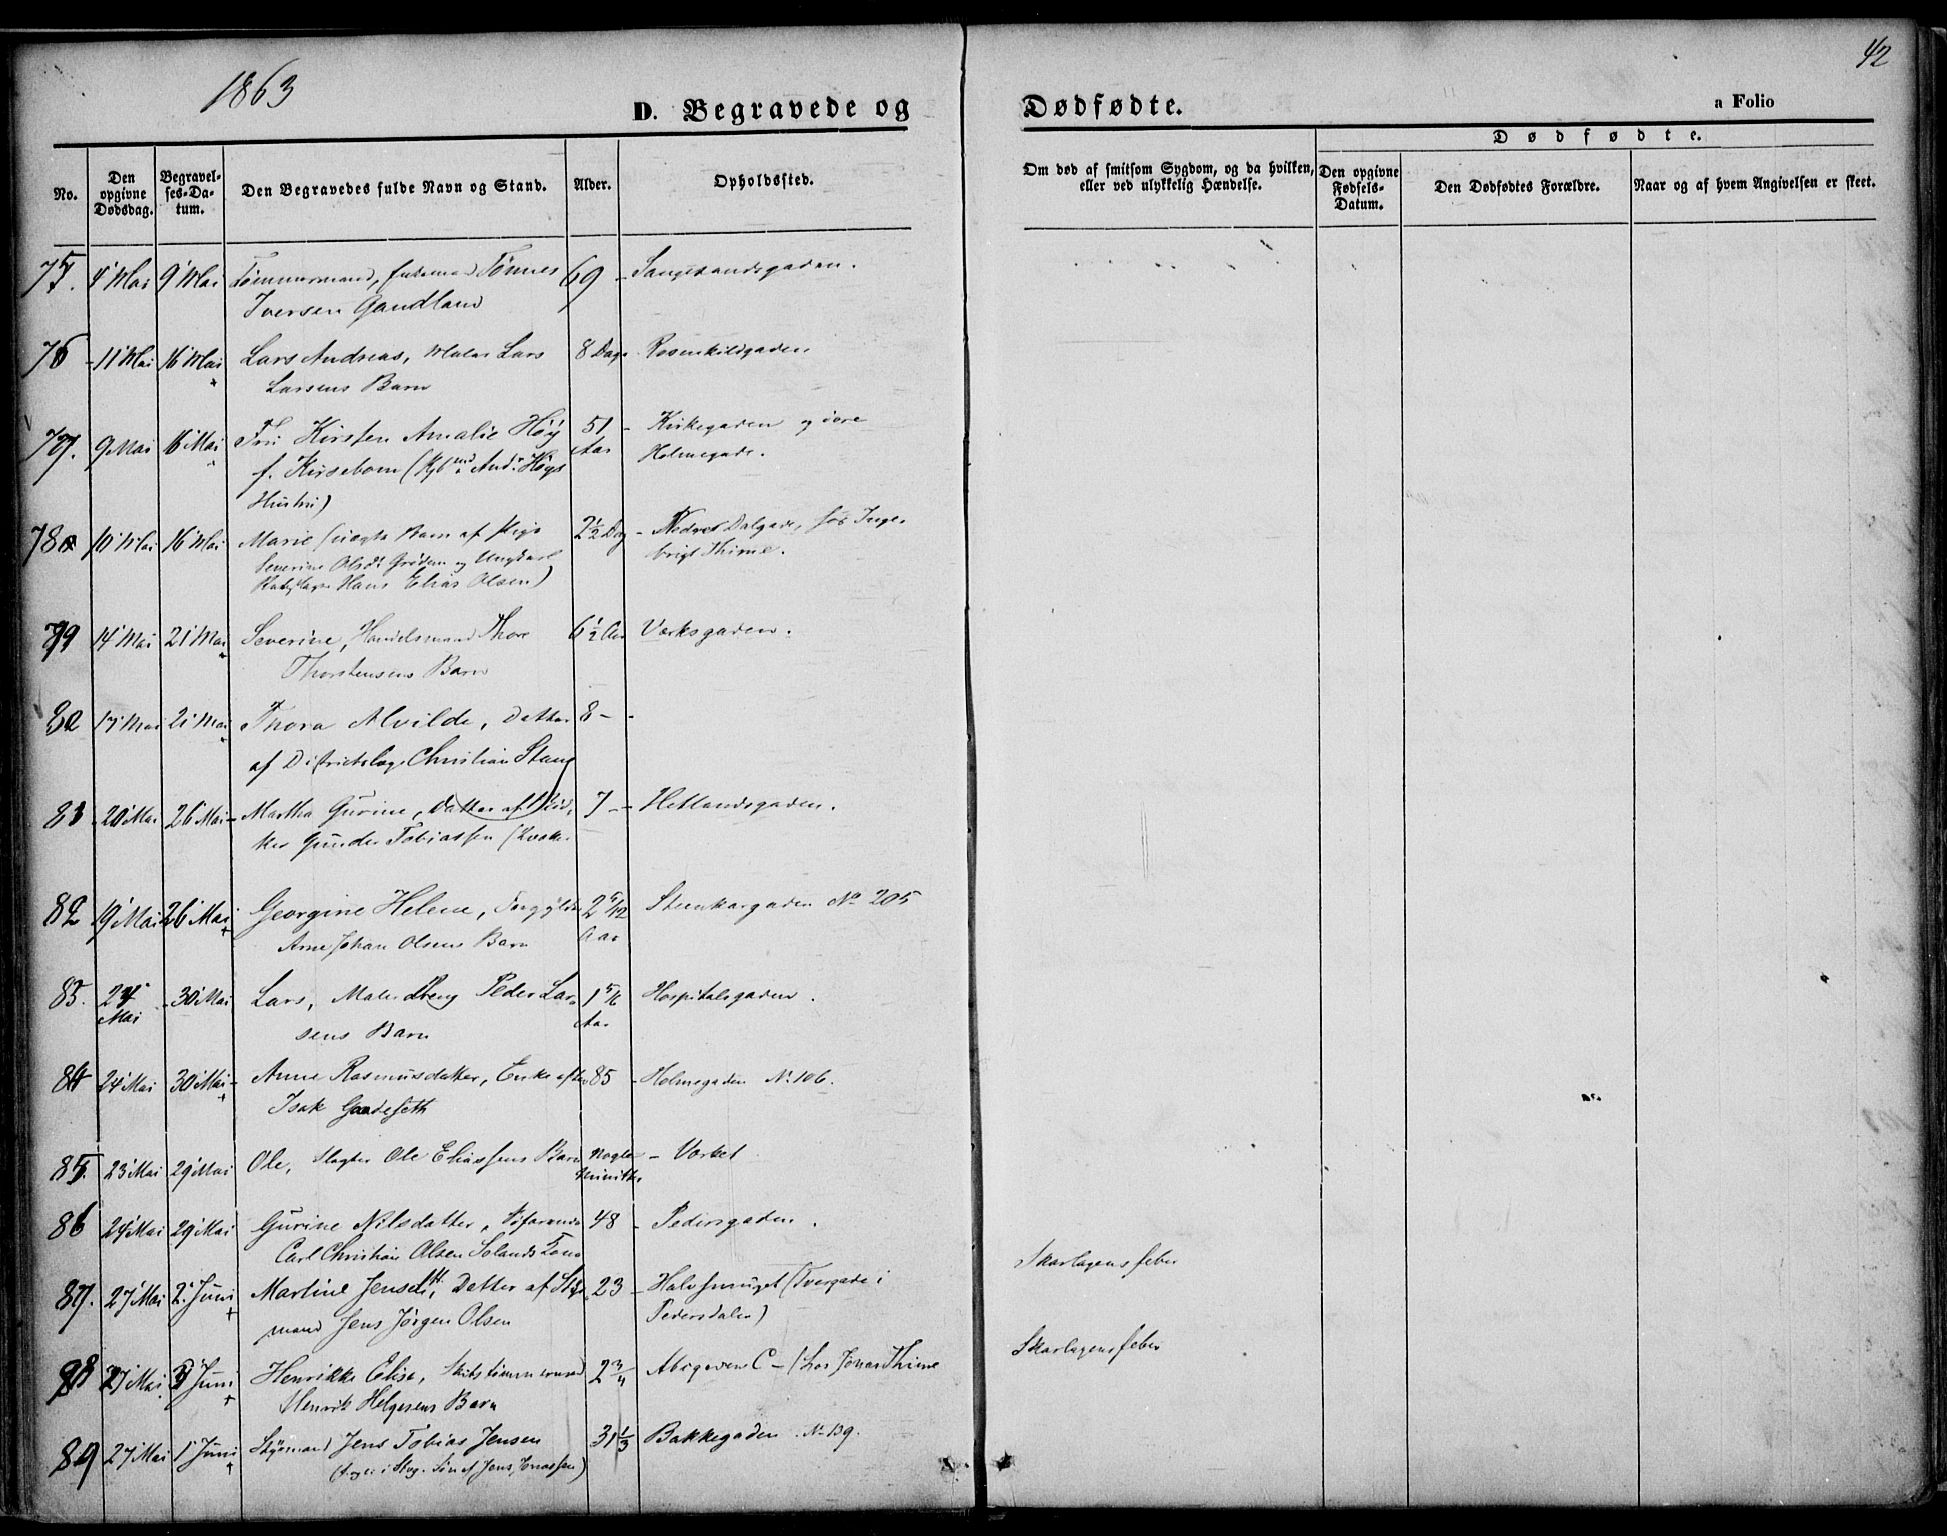 1863
42
D. Begravede og Dødfødte.
a Folio
No.
Den opgivne Dødsdag.
Begravelses-Datum.
Den Begravedes fulde Navn og Stand.
Alder.
Opholdssted.
Om død af smitsom Sygdom, og da hvilken, eller ved ulykkelig Hændelse.
Dødfødte.
Den opgivne Fødsels-Datum.
Den Dødfødtes Forældre.
Naar og af hvem Angivelsen er skeet.
75. 4 Mai 9 Mai Tømmermand, Tønnes 69
Iversen Gandland
76 11 Mai 16 Mai Lars Andreas, Maler Lars 8 Dage Rosenkildgaden
Larsens Barn
77. 9 Mai 16 Mai Kirsten Amalie Høy 51 - Kirkegaden og Øvre
f. Kirsebom (Kjbmd And. Høys Aar Holmegade.
Hustru)
78 Mai 16 Mai Marie (uægte Barn af Pige 2½ Dag - Nedre Dalgade, hos Inge-
Severine Olsdt Grødem og Ungkarl brigt Thime.
Hans Elias Olsen)
79 14 Mai 21 Mai Severine, Handelsmand Thore 6½ Aar Værksgaden.
Thorstensens Barn
80 17 Mai 21 Mai Thora Alvilde, Datter 8 -
af Districtslæge Christian Stang
81 20 Mai 26 Mai Martha Gurine, Datter af Bød- 7 - Hetlandsgaden.
ker Gunder Tobiassen
82 19 Mai 26 Mai Georgine Helene, 2 5/12 Steenkargaden No 205
Arne Johan Olsens Barn Aar
83. Mai 30 Mai Lars, Malerdreng Peder Lar- 1 5/6 Hospitalsgaden.
sens Barn Aar
84 24 Mai 30 Mai Anne Rasmusdatter, Enke efter 85 - Holmegaden No 106.
Isak Gaudeseth
85. 23 Mai 29 Mai Ole, Slagter Ole Eliassens Barn Nogle - Værket
Minutter
86 24 Mai 29 Mai Gurine Nilsdatter, Søfarende 48 - Pedersgaden.
Carl Christian Olsen Solands Kone
87. 27 Mai 2 Juni Martine Jensdtt, Datter af Styr- 23 - (Tvergade i
mand Jens Jørgen Olsen Pedersdalen)
Skarlagensfeber
88 27 Mai 3 Juni Henrikke Elise, Skibstømmermand 2¾ C - (hos Jonas Thime
Henrik Helgesens Barn
Skarlagensfeber
89 27 Mai 1 Juni Styrmand Jens Tobias Jensen 31⅓ Bakkegaden No 139.
Søn af Jens Jonassen)